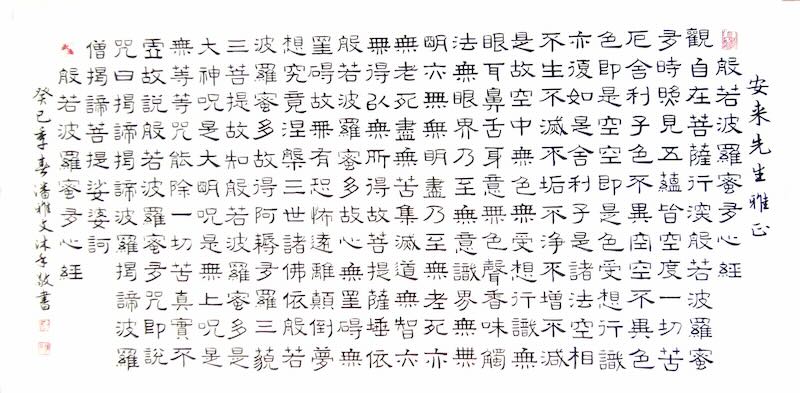 安来先生雅正
般若波羅蜜多心経
觀自在菩薩行深般若波羅蜜
多時照見五蘊皆空度一切苦
厄舍利子色不異空空不異色
色即是空空即是色受想行識
亦復如是舍利子是諸法空相
不生不滅不垢不淨不增不減
是故空中無色無受想行識無
眼耳鼻舌身意無色聲香味觸
法無眼界乃至無意識界無無
明亦無無明盡乃至無老死亦
無老死盡無苦集滅道無智亦
無得以無所得故菩提薩埵依
般若波羅蜜多故心無罣礙無
罣礙故無有恐怖遠離顛倒夢
想究竟涅槃三世諸佛依般若
波羅蜜多故得阿耨多羅三藐
三菩提故知般若波羅蜜多是
大神咒是大明咒是無上咒是
無等等咒能除一切苦真實不
虛故說般若波羅蜜多咒即說
咒曰揭諦揭諦波羅揭諦波羅
僧揭諦菩提娑婆訶
般若波羅蜜多心経
癸巳季春潘雅文沐手敬書